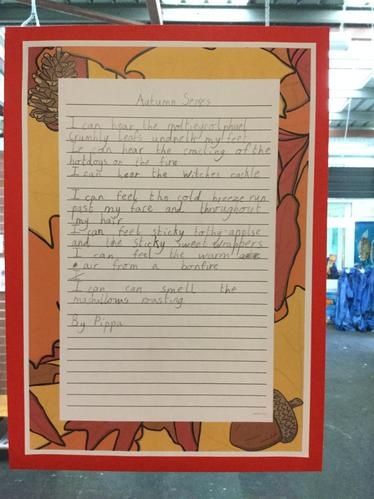 Autumn Senses
I can hear the
crumbly leafs undneth my feet
I can hear the cracling of the
hotdogs on the fire
I can hear the witches cackle
I can feel the cold breeze run
past my face and throughout
my hair
I can feel sticky tothy applse
and the sticky sweet wrappers
I can feel the warm
air from a bonfire
I can can smell the
mashullows roasting
By Pippa